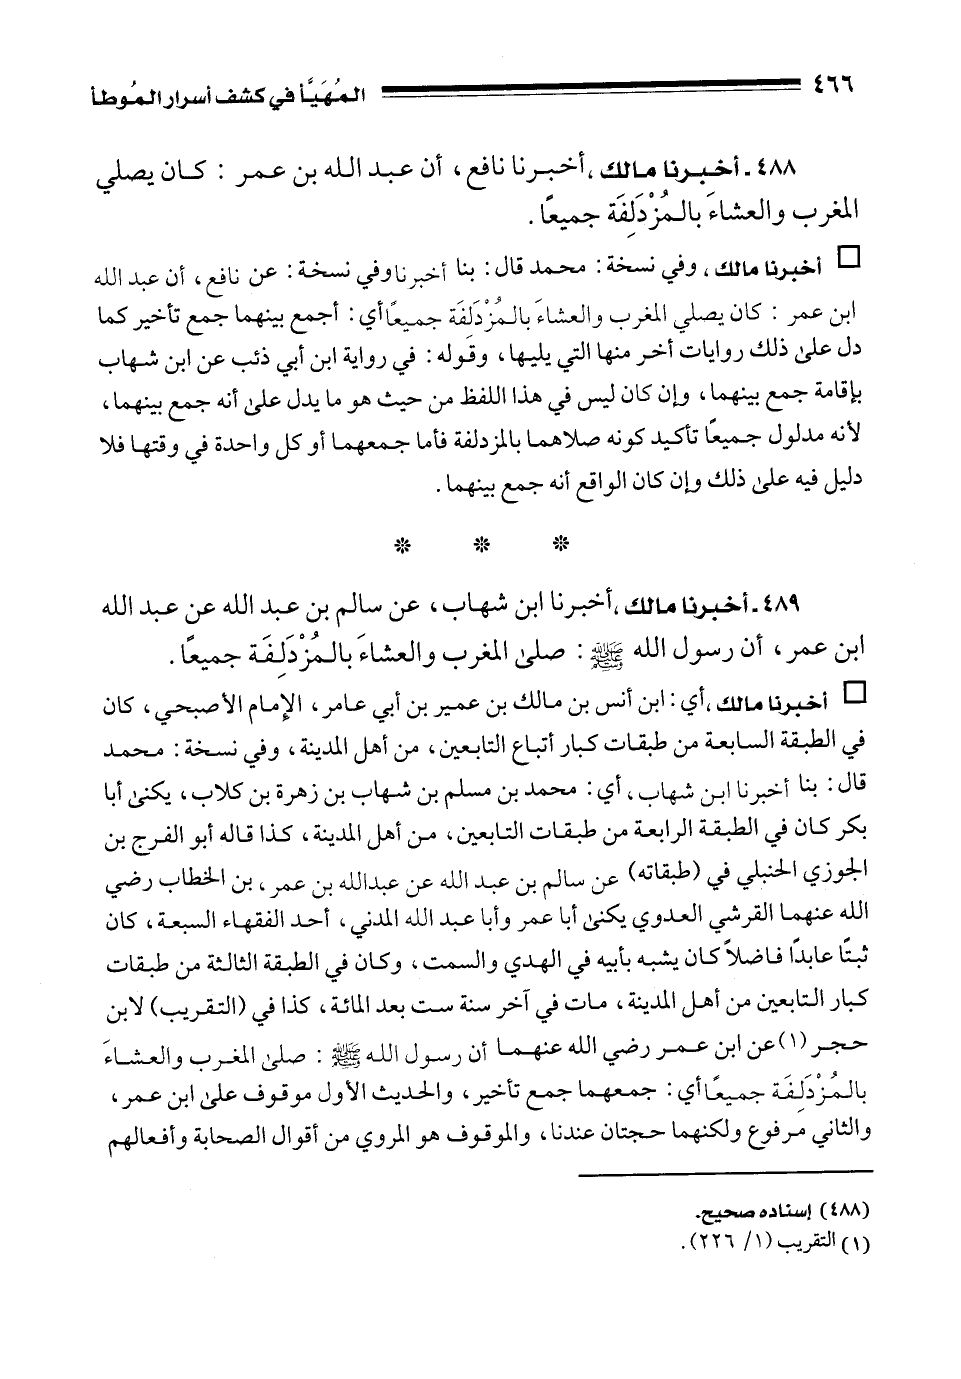 ٤٦٦ المُهَيَّأ في كشف أسرار الموطأ
٤٨٨ ـ أخبرنا مالك، أخبرنا نافع، أن عبد الله بن عمر : كان يصلي
المغرب والعشاءَ بالمُزْدَلِفَة جميعًا.
□ أخبرنا مالك، وفي نسخة: محمد قال: بنا أخبرنا وفي نسخة: عن نافع، أن عبد الله
ابن عمر : كان يصلي المغرب والعشاءَ بالمُزْدَلِفَة جميعًا أي: أجمع بينهما جمع تأخير كما
دل علىٰ ذلك روايات أخر منها التي يليها، وقوله: في رواية ابن أبي ذئب عن ابن شهاب
بإقامة جمع بينهما، وإن كان ليس في هذا اللفظ من حيث هو ما يدل علىٰ أنه جمع بينهما،
لأنه مدلول جميعًا تأكيد كونه صلاهما بالمزدلفة فأما جمعهما أو كل واحدة في وقتها فلا
دليل فيه علىٰ ذلك وإن كان الواقع أنه جمع بينهما.
* * *
٤٨٩ ـ أخبرنا مالك، أخبرنا ابن شهاب، عن سالم بن عبد الله عن عبد الله
ابن عمر، أن رسول الله ﷺ : صلىٰ المغرب والعشاءَ بالمُزْدَلِفَة جميعًا.
□ أخبرنا مالك، أي: ابن أنس بن مالك بن عمير بن أبي عامر، الإمام الأصبحي، كان
في الطبقة السابعة من طبقات كبار أتباع التابعين، من أهل المدينة، وفي نسخة: محمد
قال: بنا أخبرنا ابن شهاب، أي: محمد بن مسلم بن شهاب بن زهرة بن كلاب، يكنىٰ أبا
بكر كان في الطبقة الرابعة من طبقات التابعين، من أهل المدينة، كذا قاله أبو الفرج بن
الجوزي الحنبلي في (طبقاته) عن سالم بن عبد الله عن عبدالله بن عمر، بن الخطاب رضي
الله عنهما القرشي العدوي يكنىٰ أبا عمر وأبا عبد الله المدني، أحد الفقهاء السبعة، كان
ثبتًا عابدًا فاضلاً كان يشبه بأبيه في الهدي والسمت، وكان في الطبقة الثالثة من طبقات
كبار التابعين من أهل المدينة، مات في آخر سنة ست بعد المائة، كذا في (التقريب) لابن
حجر (١) عن ابن عمر رضي الله عنهما أن رسول الله ﷺ : صلىٰ المغرب والعشاءَ
بالمُزْدَلِفَة جميعًا أي: جمعهما جمع تأخير، والحديث الأول موقوف علىٰ ابن عمر،
والثاني مرفوع ولكنهما حجتان عندنا، والموقوف هو المروي من أقوال الصحابة وأفعالهم
(٤٨٨) إسناده صحيح.
(١) التقريب (١/ ٢٢٦).